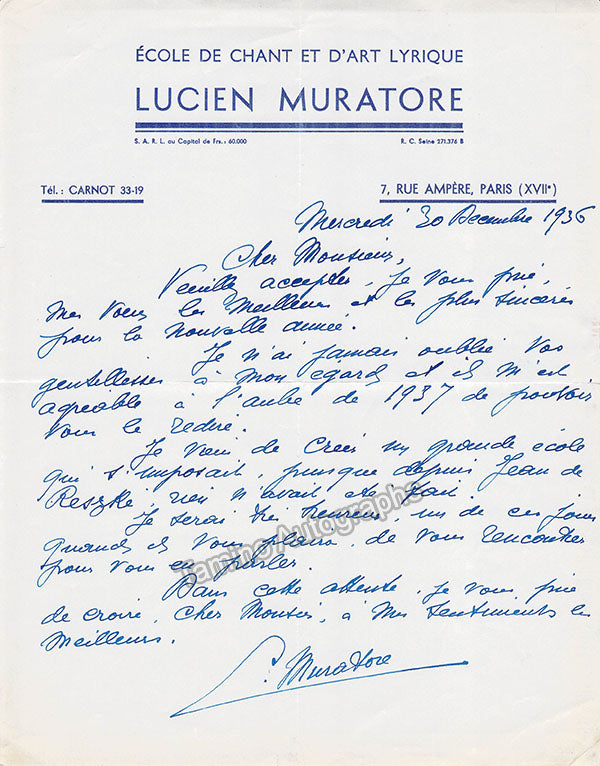 ÉCOLE DE CHANT ET D'ART LYRIQUE
LUCIEN MURATORE
S. A. R. L. au Capital de Frs.: 60.000 R. C. Seine 271.376 B
Tél.: CARNOT 33-19 7, RUE AMPÈRE, PARIS (XVIIᵉ)
Mercredi 30 Decembre 1936
Cher Monsieur,
Veuillez accepter, je vous prie,
mes voeux les meilleurs et les plus sincères
pour la nouvelle année.
Je n'ai jamais oublié vos
gentillesses à mon égard et il m'est
agréable à l'aube de 1937 de pouvoir
vous le redire.
Je viens de créer ma grande école
qui s'imposait, puisque depuis Jean de
Reszké, rien n'avait été fait.
Je serai très heureux, un de ces jours
quand il vous plaira, de vous rencontrer
pour vous en parler.
Tamino Autographs
Dans cette attente, je vous prie
de croire, cher Monsieur, à mes sentiments les
meilleurs.
L. Muratore